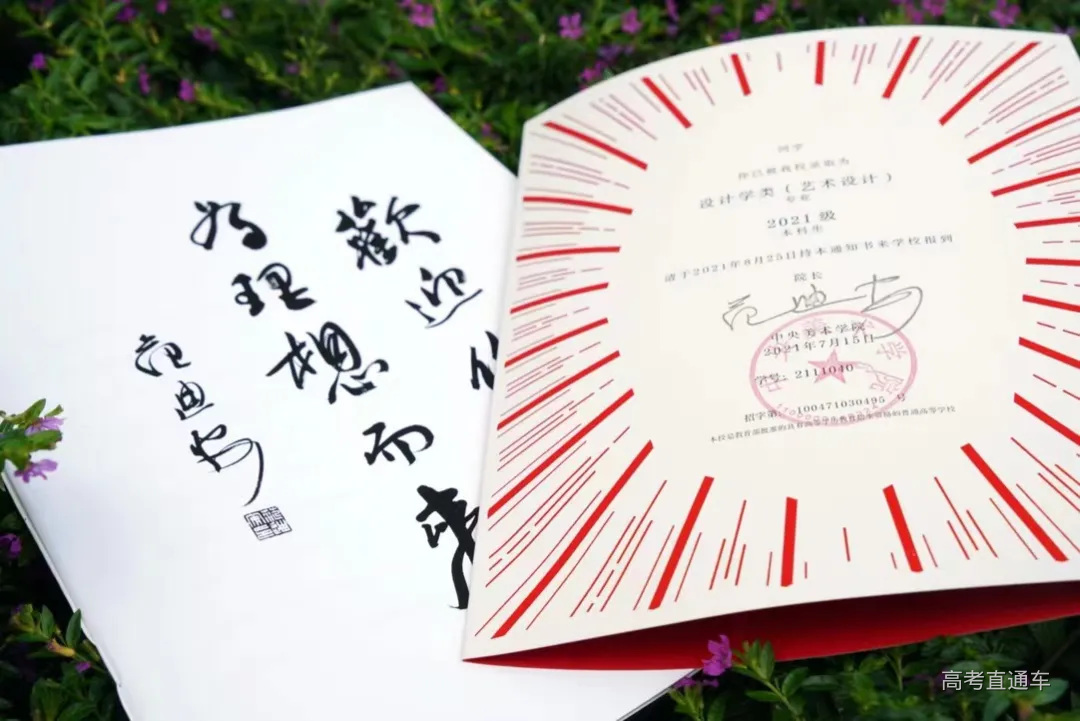 歡迎
为理想而來
范迪安
同学
你已被我校录取为
设计学类（艺术设计）
专业
2021 级
本科生
请于2021年8月25日持本通知书来学校报到
院长
范迪安
中央美术学院
2021年7月15日
学号：2111040
招字第：100471030495 号
高考直通车